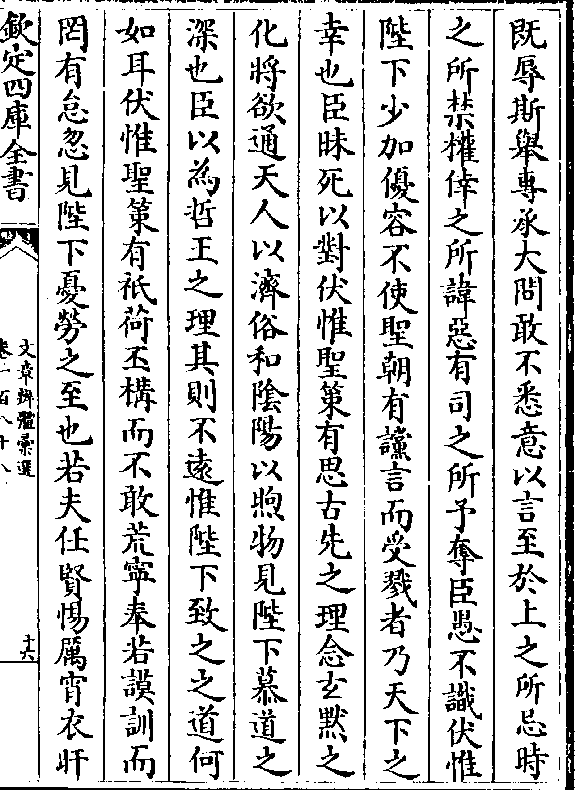 既辱斯舉專承大問敢不悉意以言至於上之所忌時
之所禁權倖之所諱惡有司之所予奪臣愚不識伏惟
陛下少加優容不使聖朝有讜言而受戮者乃天下之
幸也臣昧死以對伏惟聖策有思古先之理念玄默之
化將欲通天人以濟俗和陰陽以煦物見陛下慕道之
深也臣以為哲王之理其則不遠惟陛下致之之道何
如耳伏惟聖策有祇荷丕構而不敢荒寧奉若謨訓而
罔有怠忽見陛下憂勞之至也若夫任賢惕厲宵衣旰
欽定四庫全書
文章辨體彙選
卷一百八十八
十六